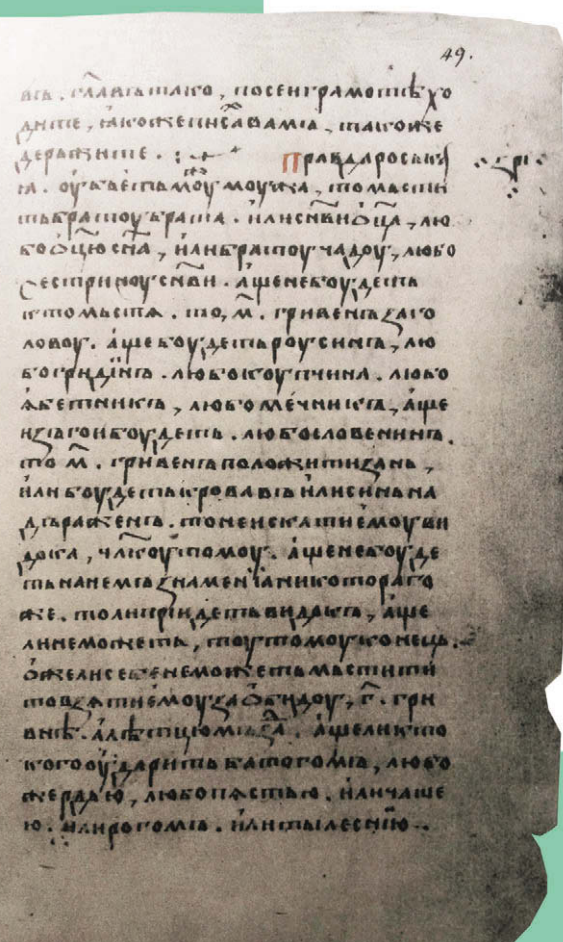 49.
въ. гл҃въ тако, по сеи грамотѣ хо
дите, ꙗкоже писа́ вамъ, такоже
держите. Правда роськаꙗ
а. оубьеть моу моужа, то мьсти
ть братоу брата. или сн҃ви ѡц҃а, лю
бо ѡц҃ю сн҃а, или братоу чадоу, любо
сестриноу сн҃ви. аще не боудеть
кто мьстѧ. то, м҃. гривенъ за го
ловоу. аще боудеть роусинъ, лю
бо гридинъ. любо коупчина. любо
ꙗбетникъ, любо мечникъ, аще
изъгои боудеть. любо словенинъ.
то м҃. гривенъ положити зань,
или боудеть кровавъ или синь на
дъраженъ. то не искати емоу ви
дока, чл҃коу томоу. аще не боуде
ть на немъ знаменїа никоторого
же. толи прїидеть видокъ, аще
ли не можеть, тоу томоу конець.
ѡже ли себе не можеть мьстити
то взѧти емоу за ѡбидоу, г҃. гри
внѣ. а лѣтцю мъзда. аще ли кто
кого оударить батогомъ, любо
жердью, любо пѧстью. или чаше
ю. или рогомъ. или тылеснїю.